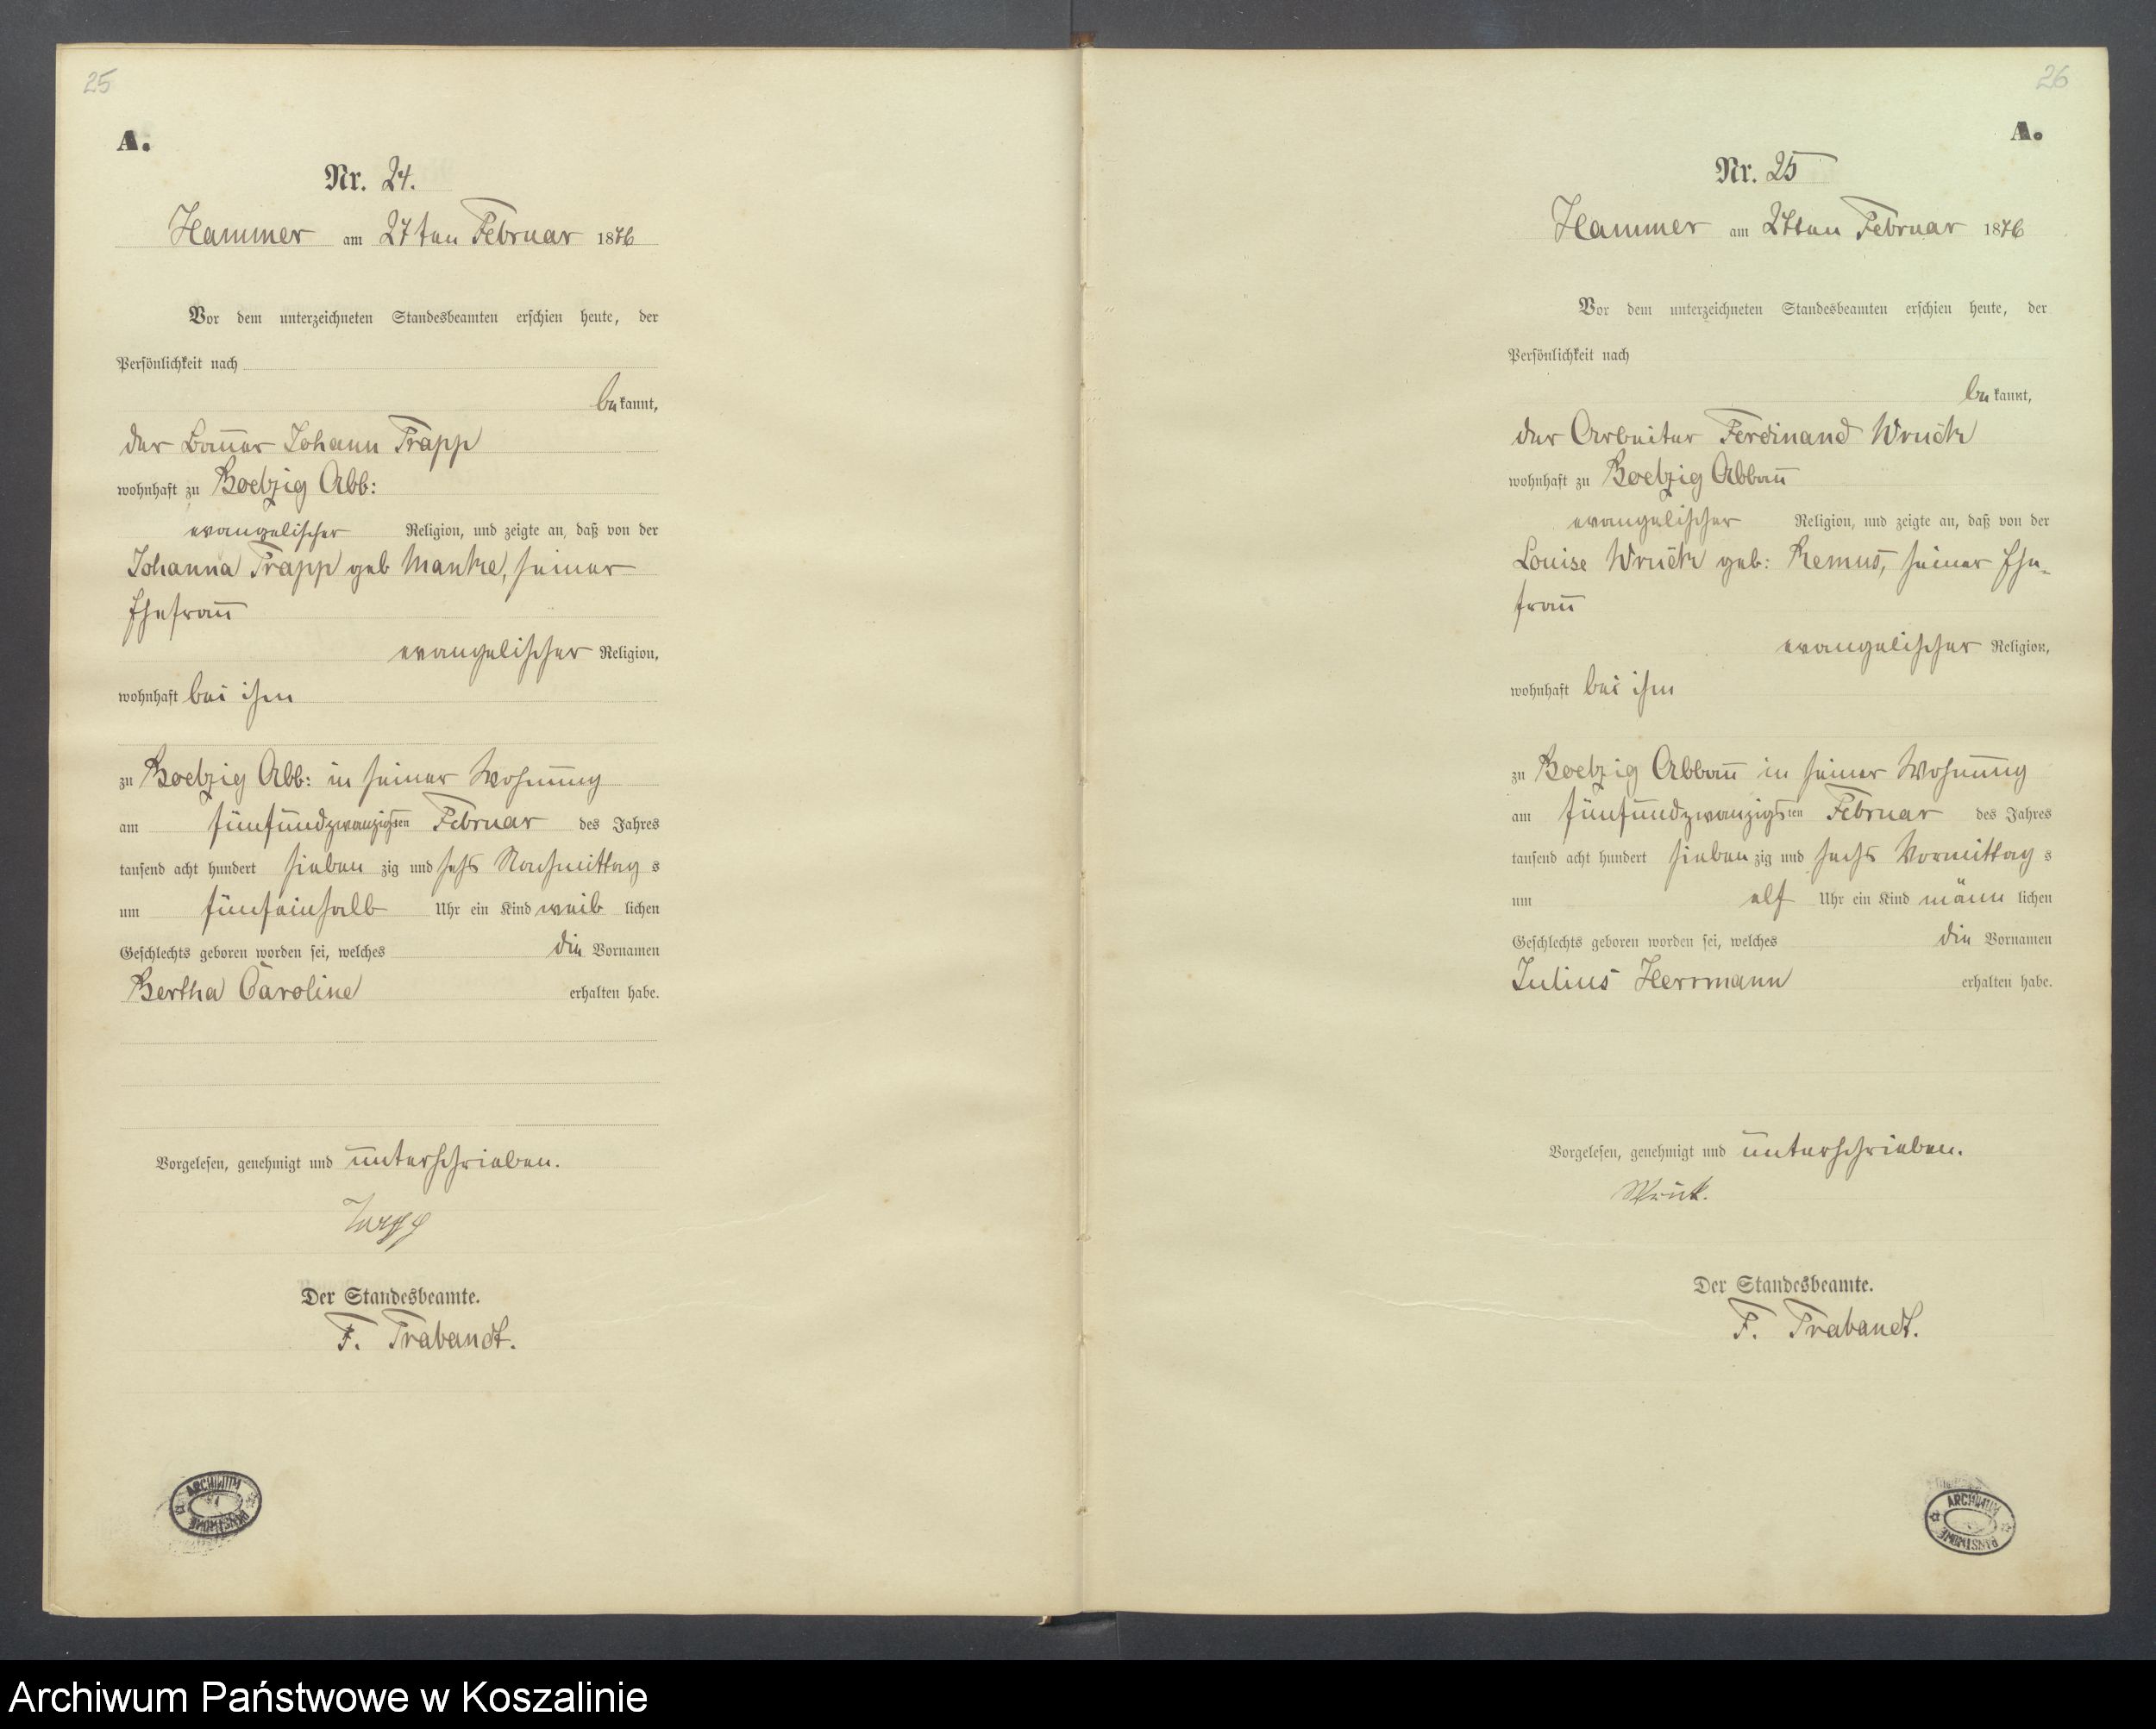 25
A.
Nr. 24.
Hammer am 27ten Februar 1876
Vor dem unterzeichneten Standesbeamten erschien heute, der
Persönlichkeit nach
bekannt,
der Bauer Johann Trapp
wohnhaft zu Boetzig Abb:
evangelischer Religion, und zeigte an, daß von der
Johanna Trapp geb Manke, seiner
Ehefrau
evangelischer Religion,
wohnhaft bei ihm
zu Boetzig Abb: in seiner Wohnung
am fünfundzwanzigsten Februar des Jahres
tausend acht hundert sieben zig und sechs Nachmittag s
um fünfeinhalb Uhr ein Kind weib lichen
Geschlechts geboren worden sei, welches die Vornamen
Bertha Caroline erhalten habe.
Vorgelesen, genehmigt und unterschrieben.
Trapp
Der Standesbeamte.
F. Trabandt.
ARCHIWUM PAŃSTWOWE
26
A.
Nr. 25
Hammer am 27ten Februar 1876
Vor dem unterzeichneten Standesbeamten erschien heute, der
Persönlichkeit nach
bekannt,
der Arbeiter Ferdinand Wruck
wohnhaft zu Boetzig Abbau
evangelischer Religion, und zeigte an, daß von der
Louise Wruck geb: Remus, seiner Ehe-
frau
evangelischer Religion,
wohnhaft bei ihm
zu Boetzig Abbau in seiner Wohnung
am fünfundzwanzigsten Februar des Jahres
tausend acht hundert sieben zig und sechs Vormittag s
um elf Uhr ein Kind männ lichen
Geschlechts geboren worden sei, welches die Vornamen
Julius Herrmann erhalten habe.
Vorgelesen, genehmigt und unterschrieben.
Wruck.
Der Standesbeamte.
F. Trabandt.
ARCHIWUM PAŃSTWOWE
Archiwum Państwowe w Koszalinie